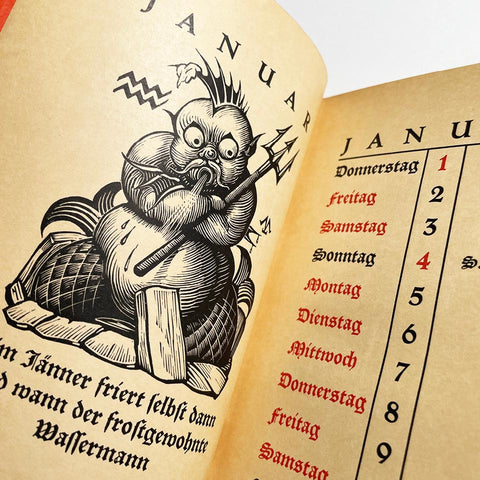 JANUAR
im Jänner friert selbst dann
d wann der frostgewohnte
Wassermann
JANU
Donnerstag 1
Freitag 2
Samstag 3
Sonntag 4
Montag 5
Dienstag 6
Mittwoch 7
Donnerstag 8
Freitag 9
Samstag